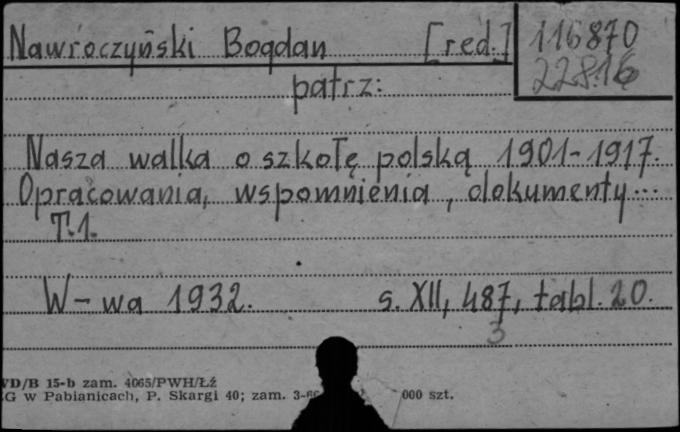 Nawroczyński Bogdan [red.]
116870
22816
patrz:
Nasza walka o szkołę polską 1901-1917.
Opracowania, wspomnienia, dokumenty...
T.1.
W-wa 1932. s. XII, 487, tabl. 20.
3
WD/B 15-b zam. 4065/PWH/Łź
ŁG w Pabianicach, P. Skargi 40; zam. 000 szt.